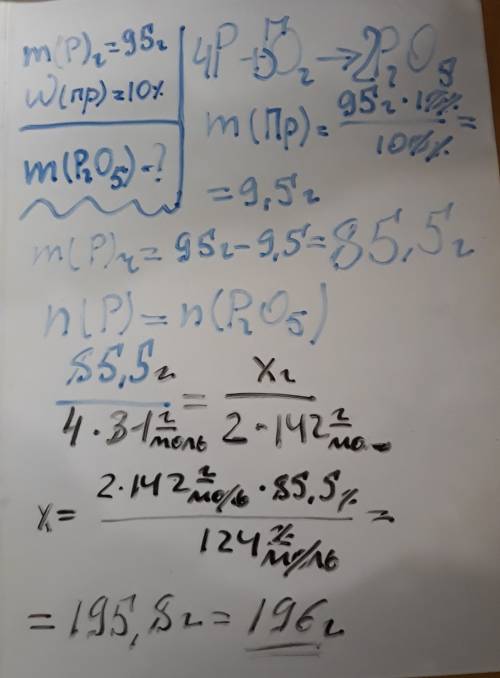 m(P)г = 95г
W(пр) = 10%
m(P₂O₅) - ?
4P + 5O₂ → 2P₂O₅
m(Пр) = 95г · 10% / 100% =
= 9,5г
m(P)ч = 95г - 9,5 = 85,5г
n(P) = n(P₂O₅)
85,5г / 4 · 31 г/моль = Xг / 2 · 142 г/мо
X = 2 · 142 г/моль · 85,5г / 124 г/моль =
= 195,8г = 196г